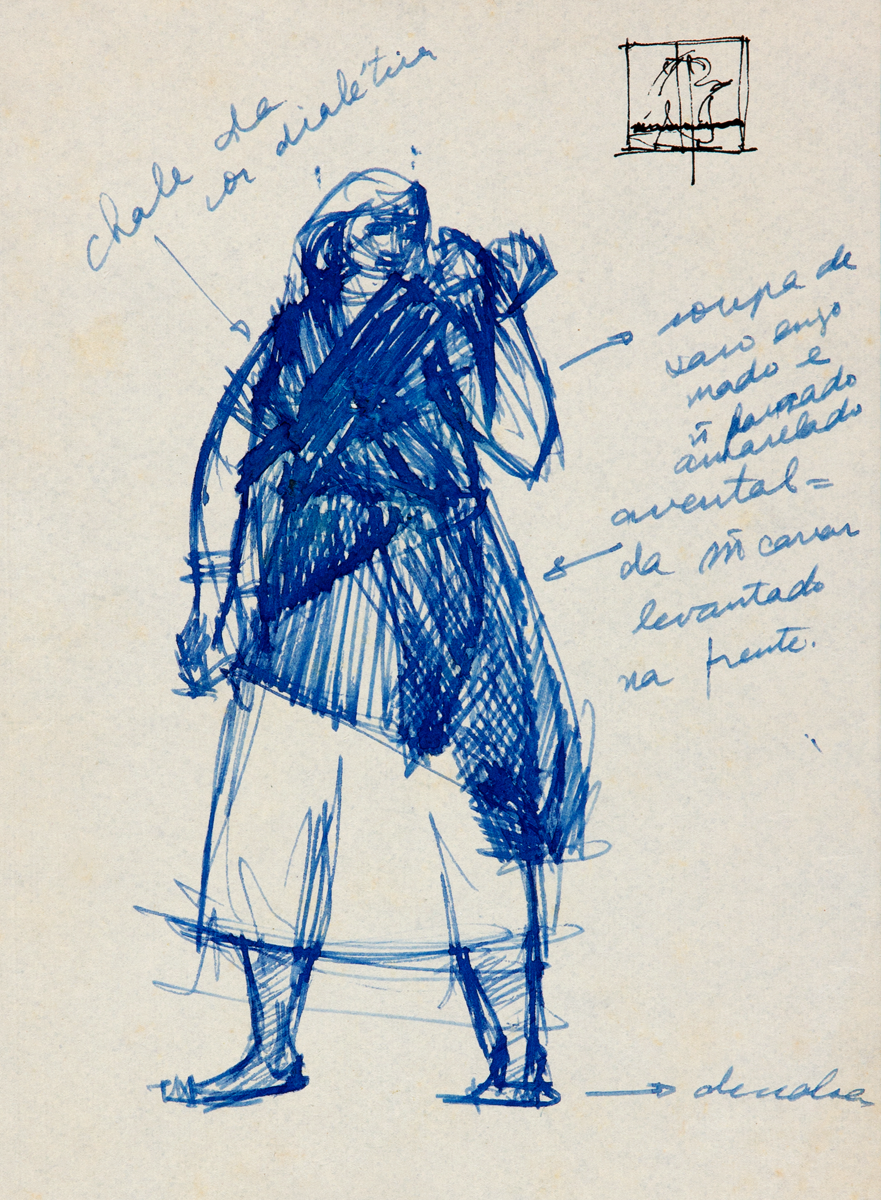 chale da
cor dialética
roupa de
saco engo
mado e
ñ passado
amarelado
avental =
da m̃
levantado
na frente.
descalsa